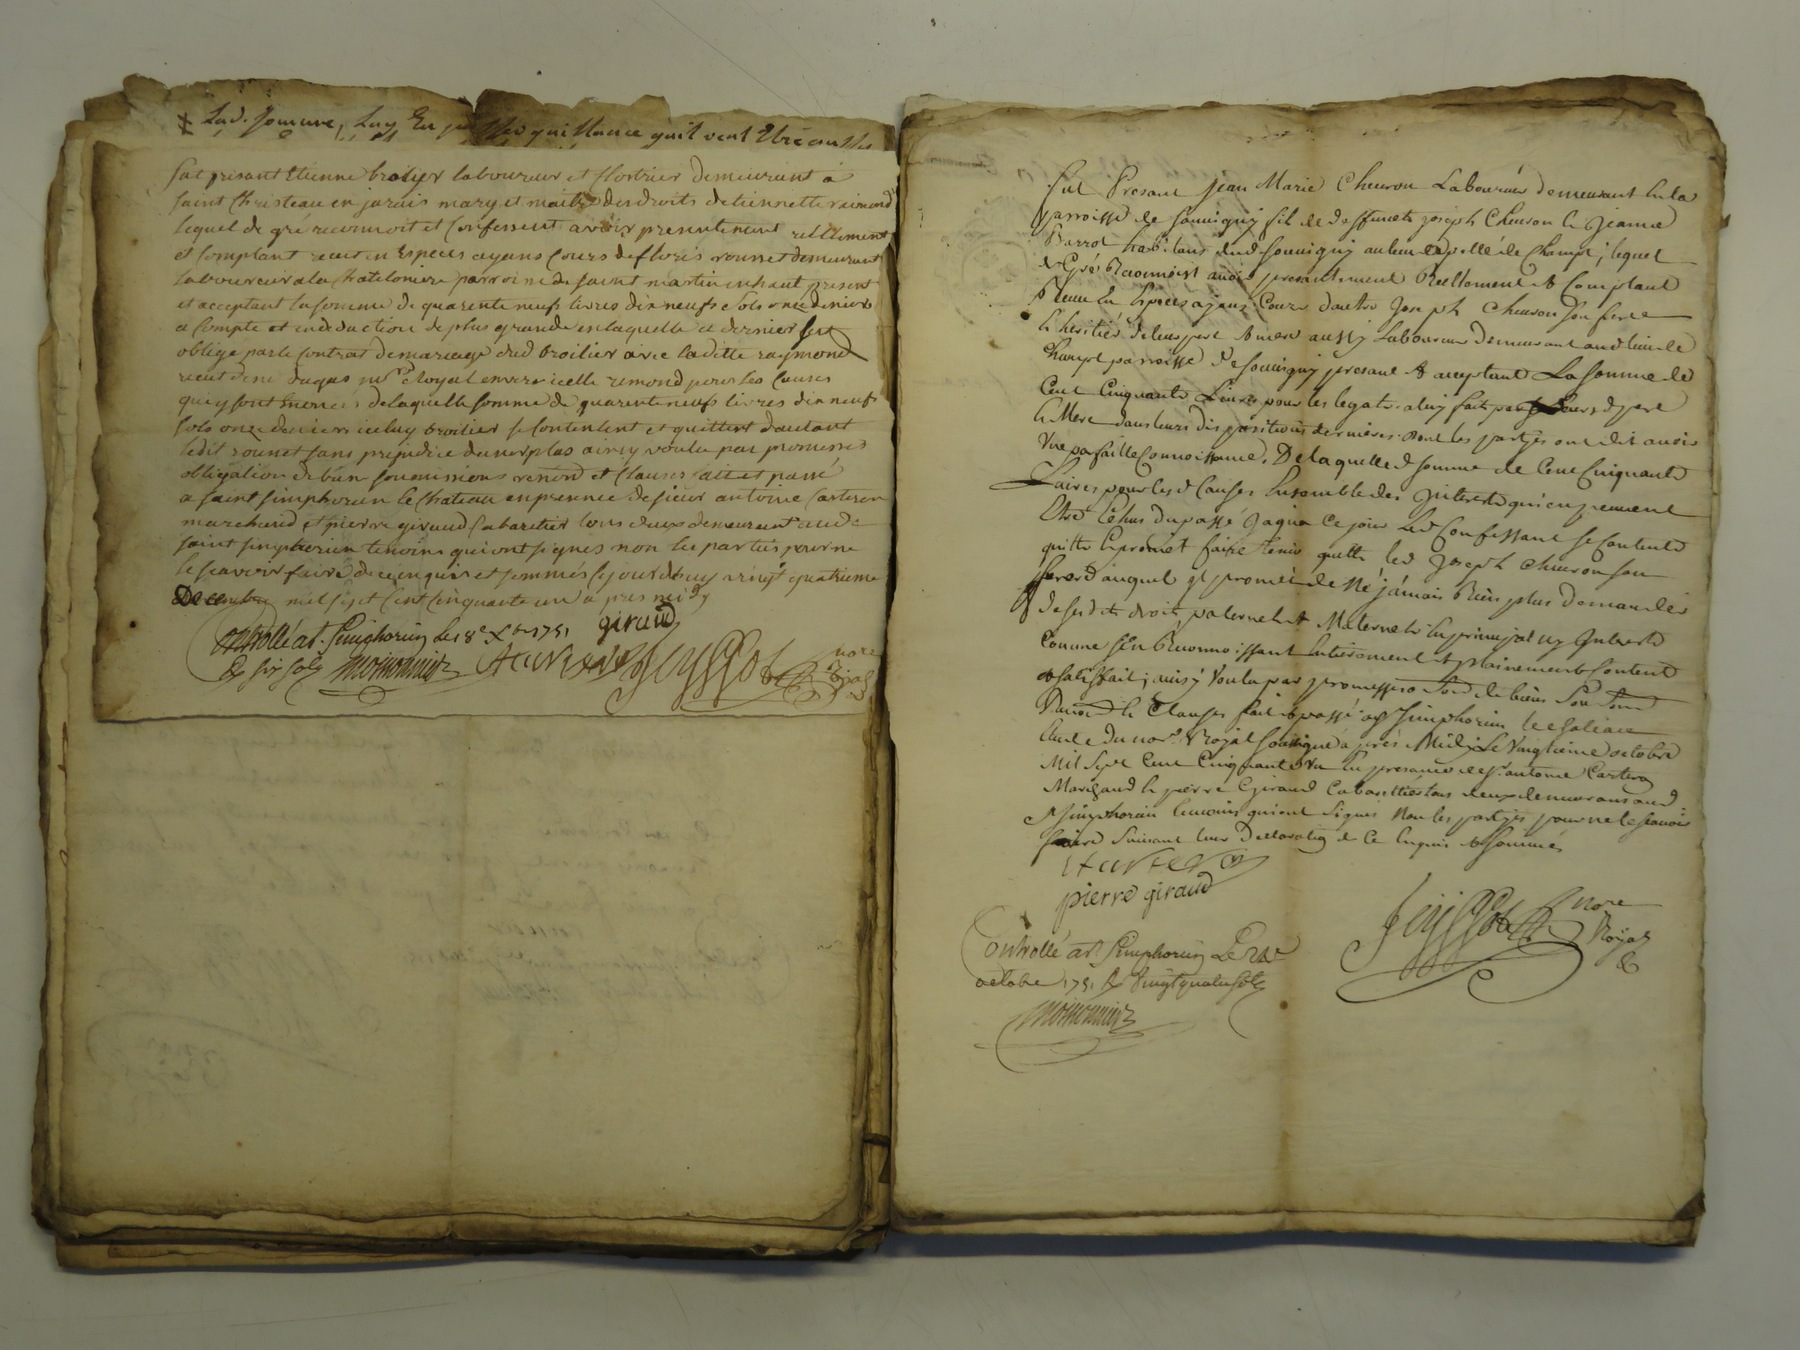 Lad. somme, luy En passer quittance quil veut Etre
fut presant Etienne brolier laboureur et demeurant à
saint Christeau en jarais mary et maitre des droits de tiennette raimond
lequel de gré reconnoit et Confessent avoir presentement reellement
et comptant receu en Especes ayans Cours de floris rousset demeurant
laboureur a la Chateloniere parroisse de saint martin enhaut present
et acceptant la somme de quarente neufs livres dix neufs sols onze deniers
a Compte et en deduction de plus grande en laquelle ce dernier sest
obligé par le Contrat de mariage dud broilier avec laditte raymond
receu dene dugas no.re royal envers icelle remond pour les Causes
qui y sont Enoncés de laquelle somme de quarente neufs livres dix neufs
sols onze deniers iceluy broilier se Contentent et quittent dautant
ledit rousset sans prejudice du surplus ainsy voulu par promesses
obligation de bien soumissions renond et Clauses fait et passé
a saint simphorien le Chateau en presence de sieur antoine Carteron
marchand et pierre giraud Cabaretier tous deux demeurant aud
saint simphorien temoins qui ont signés non les parties pour ne
le scavoir faire de ce enquis et sommés ce jourdhuy vingt quatrieme
Decembre mil sept Cent Cinquante un a pres midy
giraud
Controllé a St. Simphorien le 8.e Xbre 1751
Rx six sols moinonnier ACarteron Jeyssot nore Royal
fut Presant Jean Marie Cheuron Laboureur demeurant En la
parroisse de souvigny fils de deffunct joseph Cheuron & Jeanne
Barrot habitans dud souvigny au lieu appellé le Champt, lequel
de Gré Reconnoist avoir presentement Reellement & Comptant
Receu En Especes ajans Cours dautre Joseph Cheuron son frere
& heritier de leurs pere & mere aussy Laboureur demeurant aud lieu de
Champt parroisse de souvigny presant & acceptant La somme de
Cent Cinquante Livres pour les legats a luy fait par leursd pere
& Mere dans leurs dispositions dernieres dont les partjes ont dit avoir
Une parfaitte Connoissance. De laquelle d somme de Cent Cinquante
Livres pour lesd Causes Ensemble des Jnterests qui en peuvent
Etre Echus du passé Jusqua Ce jour led Confessant se Contente
quitte & promet faire tenir quitte led Joseph Cheuron son
frere auquel jl promet de Ne jamais Rien plus demander
de sesd droits paternels & Maternels En principal ny Jnterets
Comme sen Reconnoissant Entierement & plainement Content
& satisfait; ainsy Voulu par promesses de biens
Renon & Clauses fait & passé a St Simphorien le Chateau
Etude du no.re Royal soussigné apres Midy Le Vingtieme octobre
Mil Sept Cent Cinquante Un En presance de sr. antoine Carteron
Marchand & pierre Giraud Cabarettier tous deux demeurans aud
St Simphorien temoins qui ont Signés Non les partjes pour ne le scavoir
faire Suivant leur Declaration de Ce Enquis & sommés
ACarteron
pierre giraud
Jeyssot nore Royal
Controllé a St. Simphorien Le
octobre 1751 Rx Vingt quatre sols
moinonnier